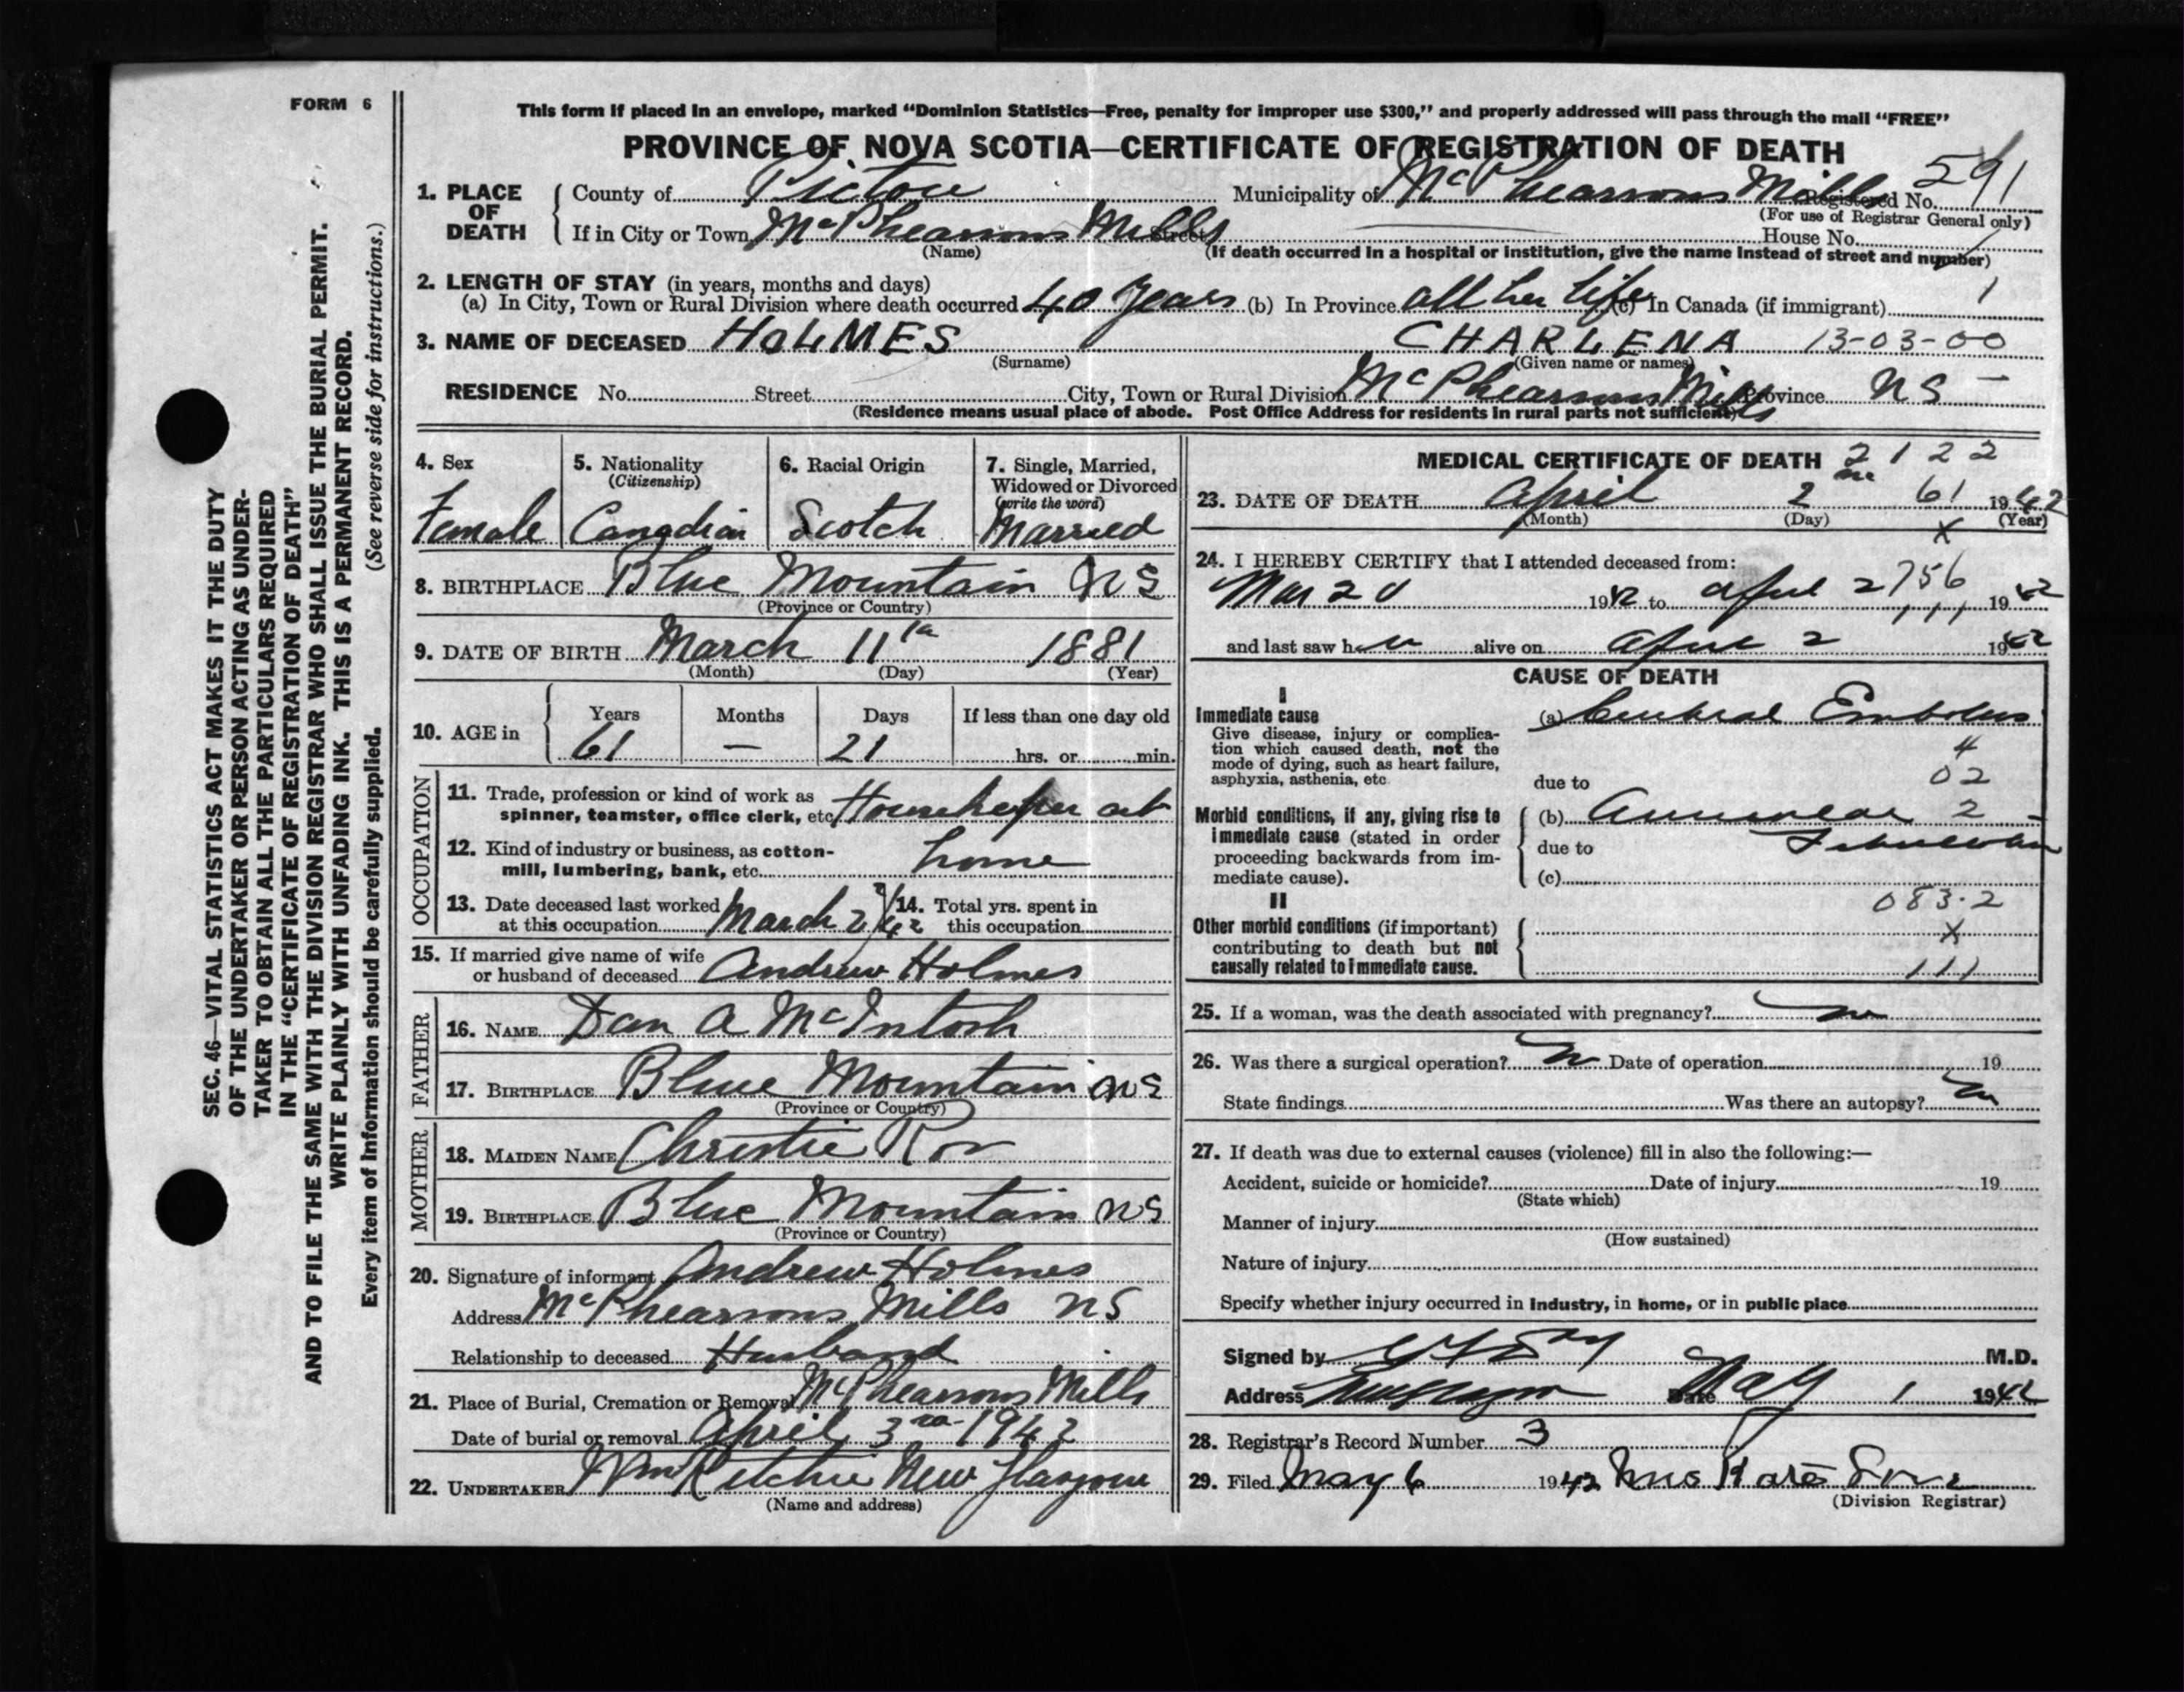 FORM 6
This form if placed in an envelope, marked "Dominion Statistics—Free, penalty for improper use $300," and properly addressed will pass through the mail "FREE"
PROVINCE OF NOVA SCOTIA—CERTIFICATE OF REGISTRATION OF DEATH
1. PLACE OF DEATH County of Pictou Municipality of McPhearsons Mills Registered No. 591
(For use of Registrar General only)
If in City or Town McPhearsons Mills Street House No.
(Name) (If death occurred in a hospital or institution, give the name instead of street and number)
2. LENGTH OF STAY (in years, months and days)
(a) In City, Town or Rural Division where death occurred 40 Years (b) In Province all her life (c) In Canada (if immigrant) 1
3. NAME OF DECEASED HOLMES CHARLENA 13-03-00
(Surname) (Given name or names)
RESIDENCE No. Street City, Town or Rural Division McPhearsons Mills Province NS
(Residence means usual place of abode. Post Office Address for residents in rural parts not sufficient)
4. Sex Female
5. Nationality (Citizenship) Canadian
6. Racial Origin Scotch
7. Single, Married, Widowed or Divorced (write the word) Married
8. BIRTHPLACE Blue Mountain NS
(Province or Country)
9. DATE OF BIRTH March 11th 1881
(Month) (Day) (Year)
10. AGE in Years Months Days If less than one day old
61 — 21 hrs. or min.
OCCUPATION
11. Trade, profession or kind of work as
spinner, teamster, office clerk, etc. Housekeeper at
12. Kind of industry or business, as cotton-
mill, lumbering, bank, etc. home
13. Date deceased last worked
at this occupation March 2/42
14. Total yrs. spent in
this occupation
15. If married give name of wife
or husband of deceased Andrew Holmes
FATHER
16. NAME Dan A McIntosh
17. BIRTHPLACE Blue Mountain NS
(Province or Country)
MOTHER
18. MAIDEN NAME Christie
19. BIRTHPLACE Blue Mountain NS
(Province or Country)
20. Signature of informant Andrew Holmes
Address McPhearsons Mills NS
Relationship to deceased Husband
21. Place of Burial, Cremation or Removal McPhearsons Mills
Date of burial or removal April 3rd 1942
22. UNDERTAKER Wm Ritchie New Glasgow
(Name and address)
MEDICAL CERTIFICATE OF DEATH 2122
23. DATE OF DEATH April 2nd 61 1942
(Month) (Day) (Year)
x
24. I HEREBY CERTIFY that I attended deceased from:
Mar 20 1942 to April 2 756 1942
111
and last saw her alive on April 2 1942
CAUSE OF DEATH
I
Immediate cause
Give disease, injury or complica-
tion which caused death, not the
mode of dying, such as heart failure,
asphyxia, asthenia, etc
(a) Cerebral Embolus
4
due to 02
Morbid conditions, if any, giving rise to
immediate cause (stated in order
proceeding backwards from im-
mediate cause).
(b) Auricular 2
due to Fibrillation
(c)
083.2
II
Other morbid conditions (if important)
contributing to death but not
causally related to immediate cause.
X
111
25. If a woman, was the death associated with pregnancy? no
26. Was there a surgical operation? no Date of operation 19
State findings Was there an autopsy? no
27. If death was due to external causes (violence) fill in also the following:—
Accident, suicide or homicide? Date of injury 19
(State which)
Manner of injury
(How sustained)
Nature of injury
Specify whether injury occurred in industry, in home, or in public place
Signed by M.D.
Address Date May 1 1942
28. Registrar's Record Number 3
29. Filed May 6 1942 Mrs
(Division Registrar)
SEC. 46—VITAL STATISTICS ACT MAKES IT THE DUTY
OF THE UNDERTAKER OR PERSON ACTING AS UNDER-
TAKER TO OBTAIN ALL THE PARTICULARS REQUIRED
IN THE "CERTIFICATE OF REGISTRATION OF DEATH"
AND TO FILE THE SAME WITH THE DIVISION REGISTRAR WHO SHALL ISSUE THE BURIAL PERMIT.
WRITE PLAINLY WITH UNFADING INK. THIS IS A PERMANENT RECORD.
Every item of information should be carefully supplied. (See reverse side for instructions.)